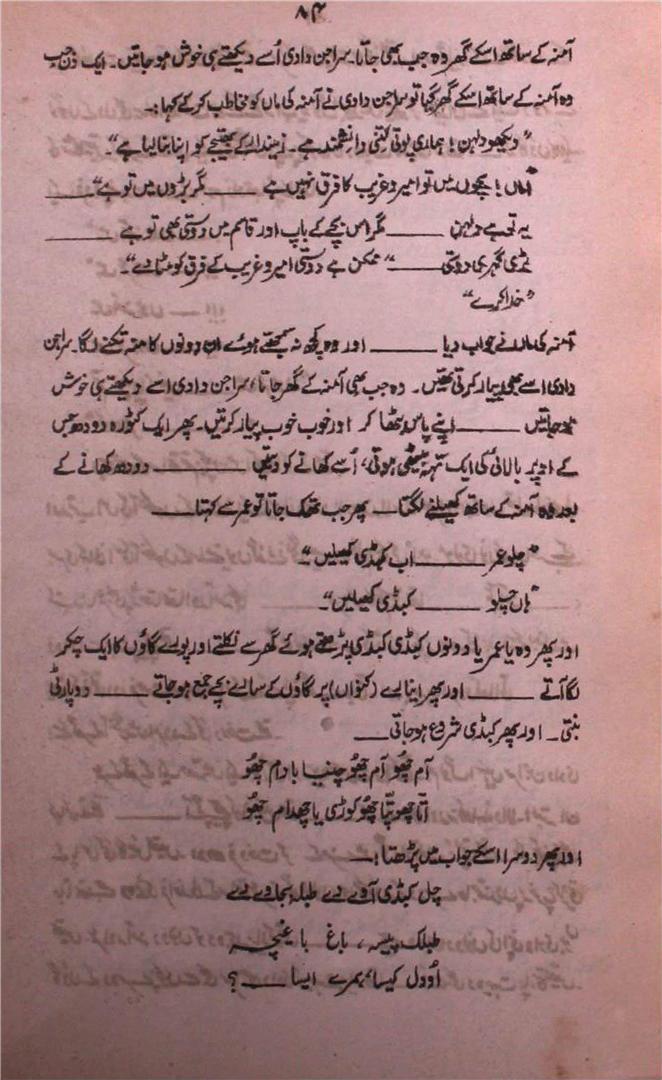 ۸۴
آمنہ کے ساتھ اسکے گھر وہ جب بھی جاتا۔ سراجن دادی اُسے دیکھتے ہی خوش ہو جاتیں۔ ایک دن جب
وہ آمنہ کے ساتھ اسکے گھر گیا تو سراجن دادی نے آمنہ کی ماں کو مخاطب کر کے کہا:۔
"دیکھو دلہن! ہماری پوتی کتنی دانشمند ہے۔ زمیندار کے بھتیجے کو اپنا بنا لیا ہے"۔
"اماں! بچوں میں تو امیر و غریب کا فرق نہیں ہے ـــــــ مگر بڑوں میں تو ہے"ـــــــ
یہ تو ہے دلہن ـــــــ مگر اس بچے کے باپ اور قاسم میں دوستی بھی تو ہے ـــــــ
بڑی گہری دوستی ـــــــ "ممکن ہے دوستی امیر و غریب کے فرق کو مٹا دے"۔
"خدا کرے"
آمنہ کی ماں نے جواب دیا ـــــــ اور وہ کچھ نہ سمجھتے ہوئے ان دونوں کا منہ تکنے لگا۔ سراجن
دادی اسے بھی پیار کرتی تھیں۔ وہ جب بھی آمنہ کے گھر جاتا، سراجن دادی اسے دیکھتے ہی خوش
ہو جاتیں ـــــــ اپنے پاس بٹھا کر اور خوب خوب پیار کرتیں۔ پھر ایک کٹورہ دودھ جس
کے اوپر بالائی کی ایک تہہ بیٹھی ہوتی، اُسے کھانے کو دیتیں ـــــــ دودھ کھانے کے
بعد وہ آمنہ کے ساتھ کھیلنے لگتا ـــ پھر جب تھک جاتا تو عمر سے کہتا ـــــــ
"چلو عمر ـــــــ اب کبڈی کھیلیں"۔
"ہاں چلو ـــــــ کبڈی کھیلیں"۔
اور پھر وہ یا عمر یا دونوں کبڈی کبڈی پڑھتے ہوئے گھر سے نکلتے اور پورے گاؤں کا ایک چکر
لگا آتے ـــــــ اور پھر اینارے (کنواں) پر گاؤں کے سارے بچے جمع ہو جاتے ـــــــ دو پارٹی
بنتی ـ اور پھر کبڈی شروع ہو جاتی ـــــ
آم چھُو آم چھُو چنیا بادام چھُو
آتا چھو پتا چھُو کوڑی یا چھدام چھُو
اور پھر دوسرا اسکے جواب میں پڑھتا:۔
چل کبڈی آوے دے طبلہ بجاوے دے
طبلک پیسہ، باغ باغیچہ
اُو دل کیسا، ہمرے ایسا ـــــــ؟